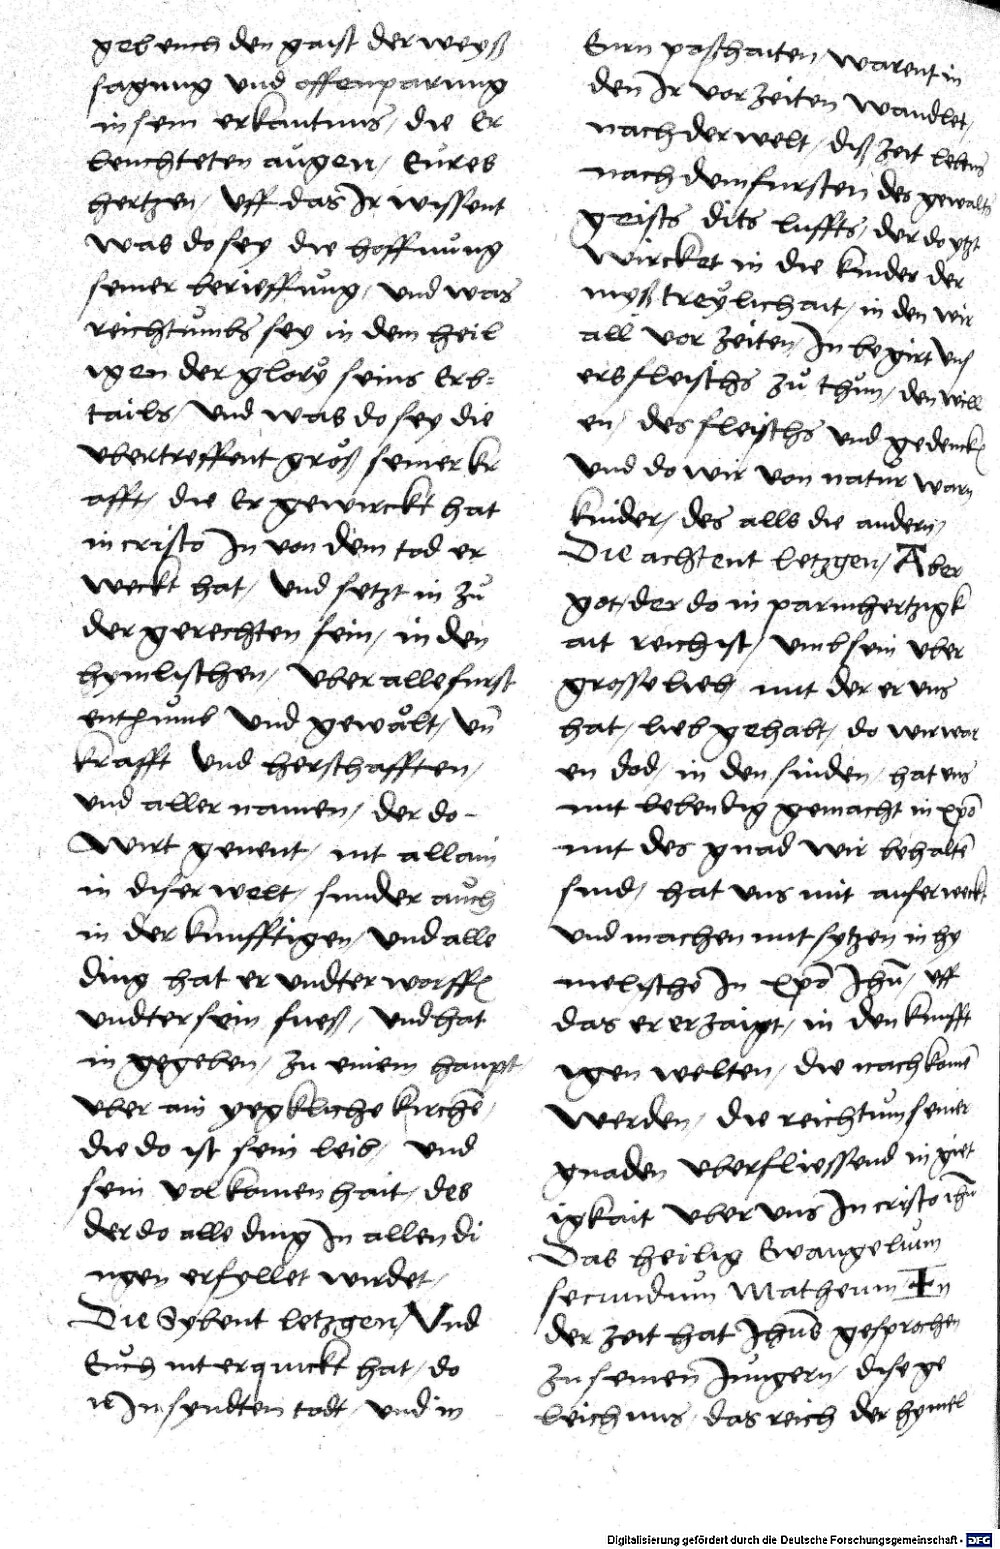 geb euch den gaist der weyß
sagung vnd offenparung
in sein erkantnus, die er
leuchteten augen, eures
hertzen, vff das Ir wissent
was do sey die hoffnung
seiner berieffung, vnd was
reichtumbs sey in dem heil
igen der glory seins Erb-
tails, vnd was do sey die
vbertreffent größ seiner kr
afft, die Er gewirckt hat
in cristo In von dem tod er
weckt hat, vnd setzt in zu
der gerechten sein, in den
hymlischen, vber alle furst
enthumb vnd gewält, vn̄
krafft vnd herschafften,
vnd aller namen, der do-
wirt genent, nit allain
in diser welt, sunder auch
in der kunfftigen, vnd alle
ding hat er vndterworffn
vndter sein fueß, vnd hat
in gegeben, zu einem haupt
vber ain yegkliche kirchē,
die do ist sein leib, vnd
sein volkomenhait, des
der do alle ding In allen di
ngen erfyllet wirdet,
Die Sybent letzgen, Vnd
Euch mit erquickt hat, do
ir In sundten todt, vnd in
Eurn poßhaiten warent in
den Ir vor zeiten wandlet,
nach der welt, diß zeit lebens
nach dem fursten des gewalts
geists dits luffts, der do ytzt
wircket in die kinder der
mystreylichait, in den wir
all vor zeiten, In begirt vns
ers fleischs zu thun, den will
en, des fleischs vnd gedenckn
vnd do wir von natur warn
kinder, des alls die andern,
Die achtent letzgen, Aber
got, der do in parmhertzigk
ait reich ist, vmb sein vber
grosse lieb, mit der er vns
hat, lieb gehabt, do wir war
en dod, in den sinden, hat vns
mit lebendig gemacht in xpō
mit des gnad wir behaltē
sind, hat vns mit auferweckt
vnd machen mit sytzen in hy
melischē In xpō Jhū, vff
das er erzaigt, in den kunfft
igen welten, die nachkomē
werden, die reichtum seiner
gnaden vberfliessend in giet
igkait vber vns In cristo ihū
Das heilig Ewangelium
secundum Matheum In
der zeit hat Jhūs gesprochen
zu seinen Jungern, dise ge
leichnus, das reich der hymel
Digitalisierung gefördert durch die Deutsche Forschungsgemeinschaft - DFG